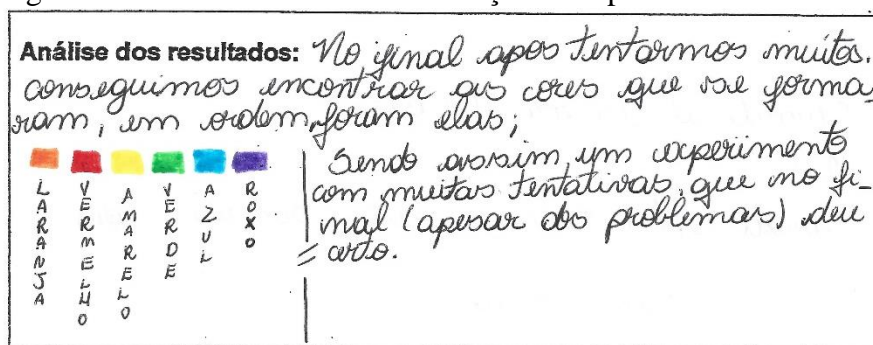 Análise dos resultados: No final apos tentarmos muito.
conseguimos encontrar as cores que se forma
ram, em ordem, foram elas;
LARANJA
VERMELHO
AMARELO
VERDE
AZUL
ROXO
Sendo assim, um experimento
com muitas tentativas, que no fi-
nal (apesar dos problemas) deu
certo.